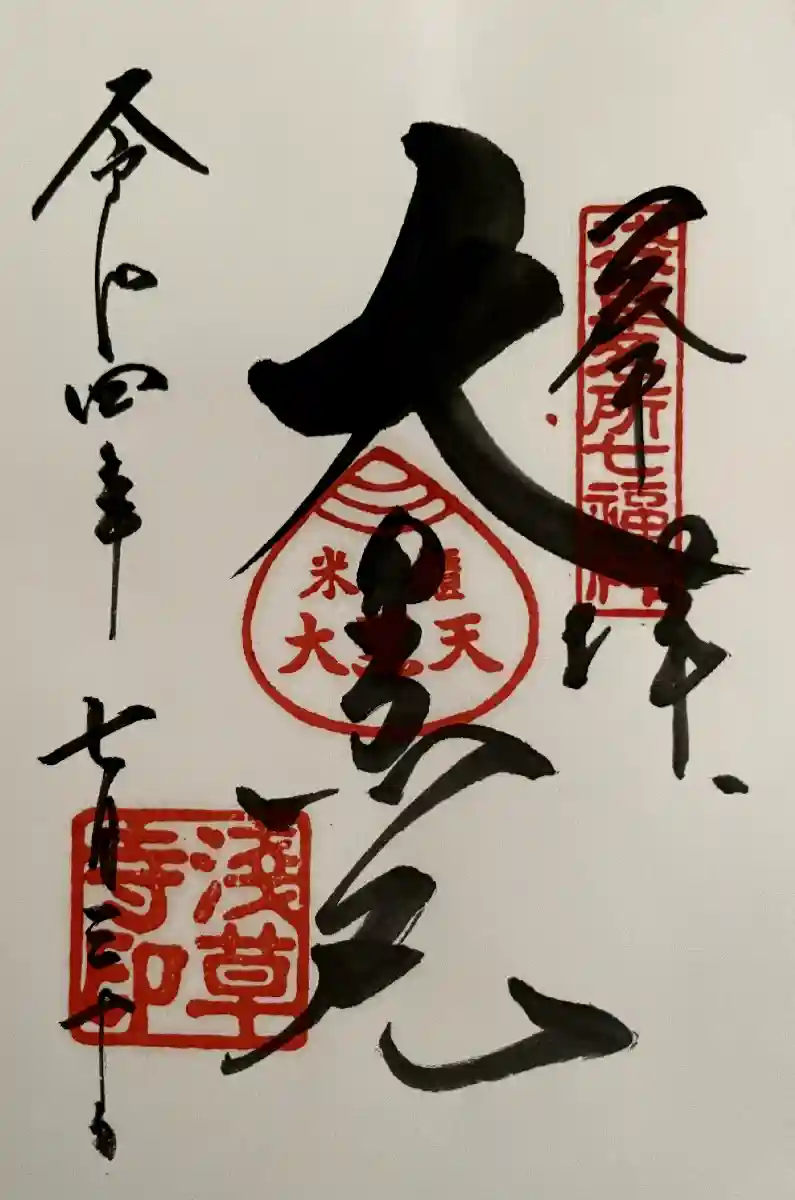 奉拝
浅草名所七福神
大黒天
米櫃
大黒天
浅草寺印
令和四年 七月三十日